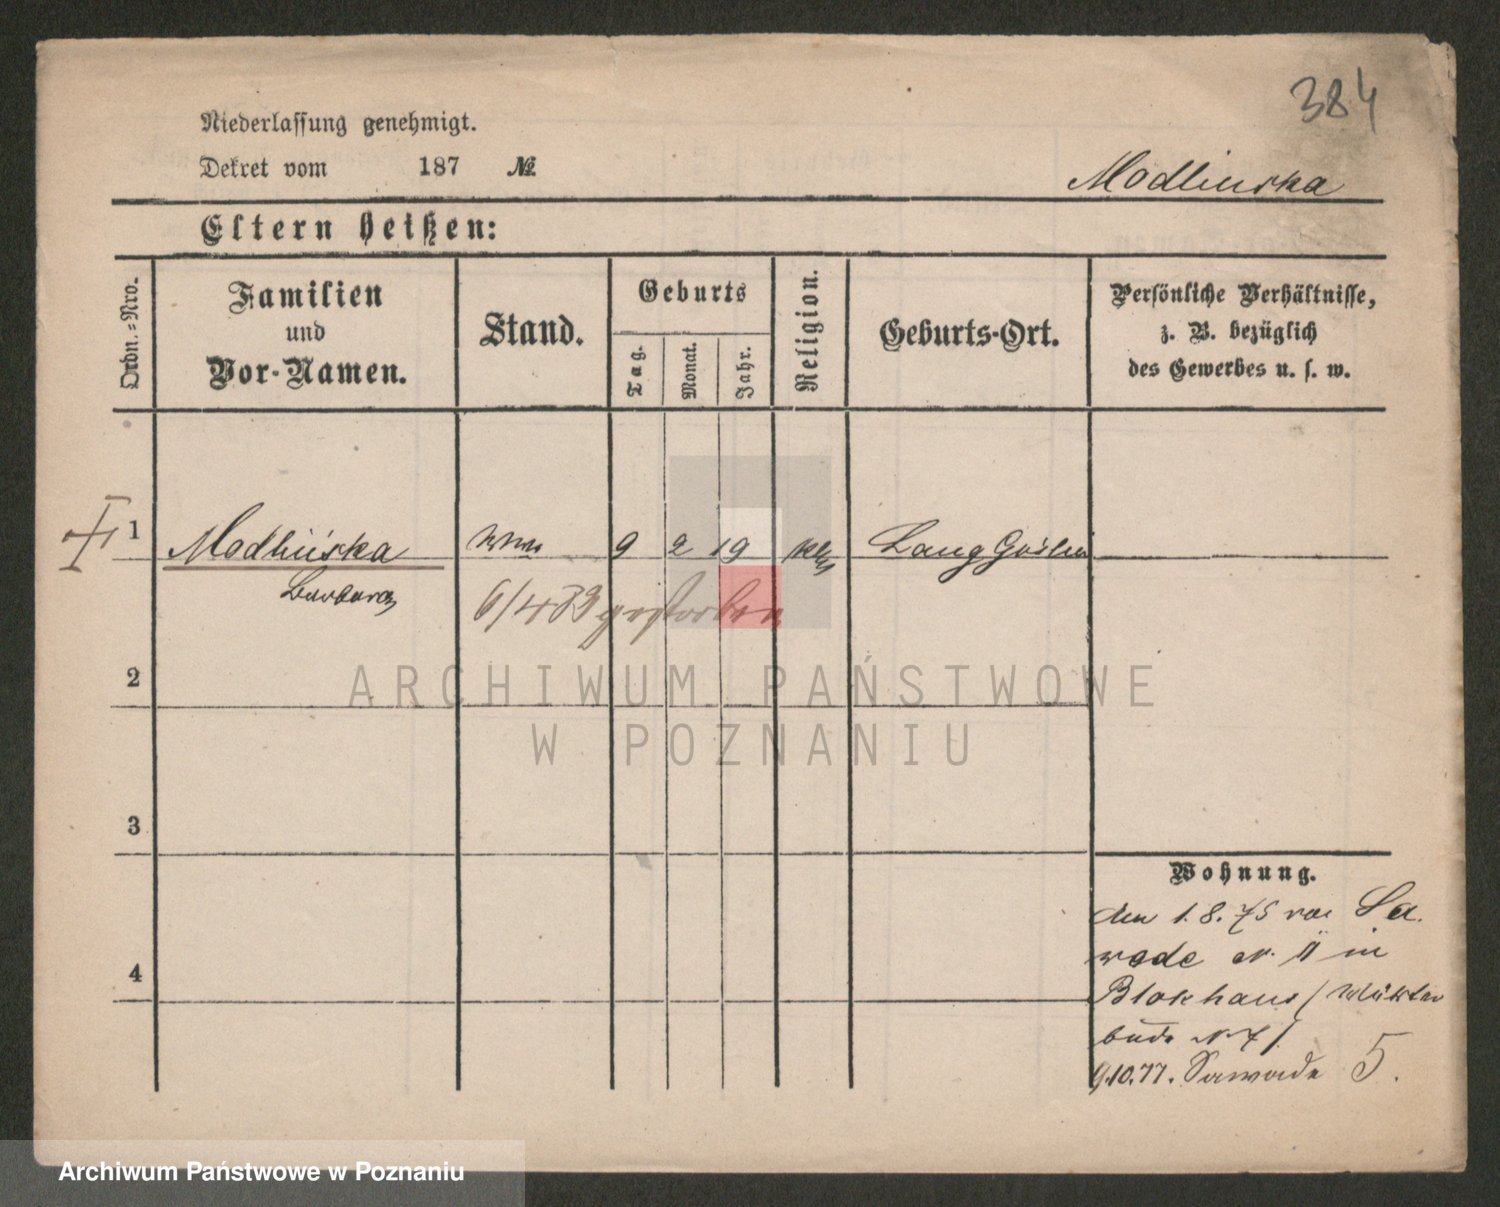 384
Niederlassung genehmigt.
Dekret vom 187 №
Modlinska
Eltern heißen:
Ordn.-Nro.
Familien
und
Vor-Namen.
Stand.
Geburts
Tag.
Monat.
Jahr.
Religion.
Geburts-Ort.
Persönliche Verhältnisse,
z. B. bezüglich
des Gewerbes u. s. w.
1 Modlińska 9 2 19 kth Lang Goslin
Barbara
6/4 83 gestorben
2
ARCHIWUM PAŃSTWOWE
W POZNANIU
3
4
Wohnung.
den 1. 8. 75 von Sa
wade nr. 11 in
Blokhaus / Wächter
bude N 7 /
9.10.77. Sawade 5.
Archiwum Państwowe w Poznaniu